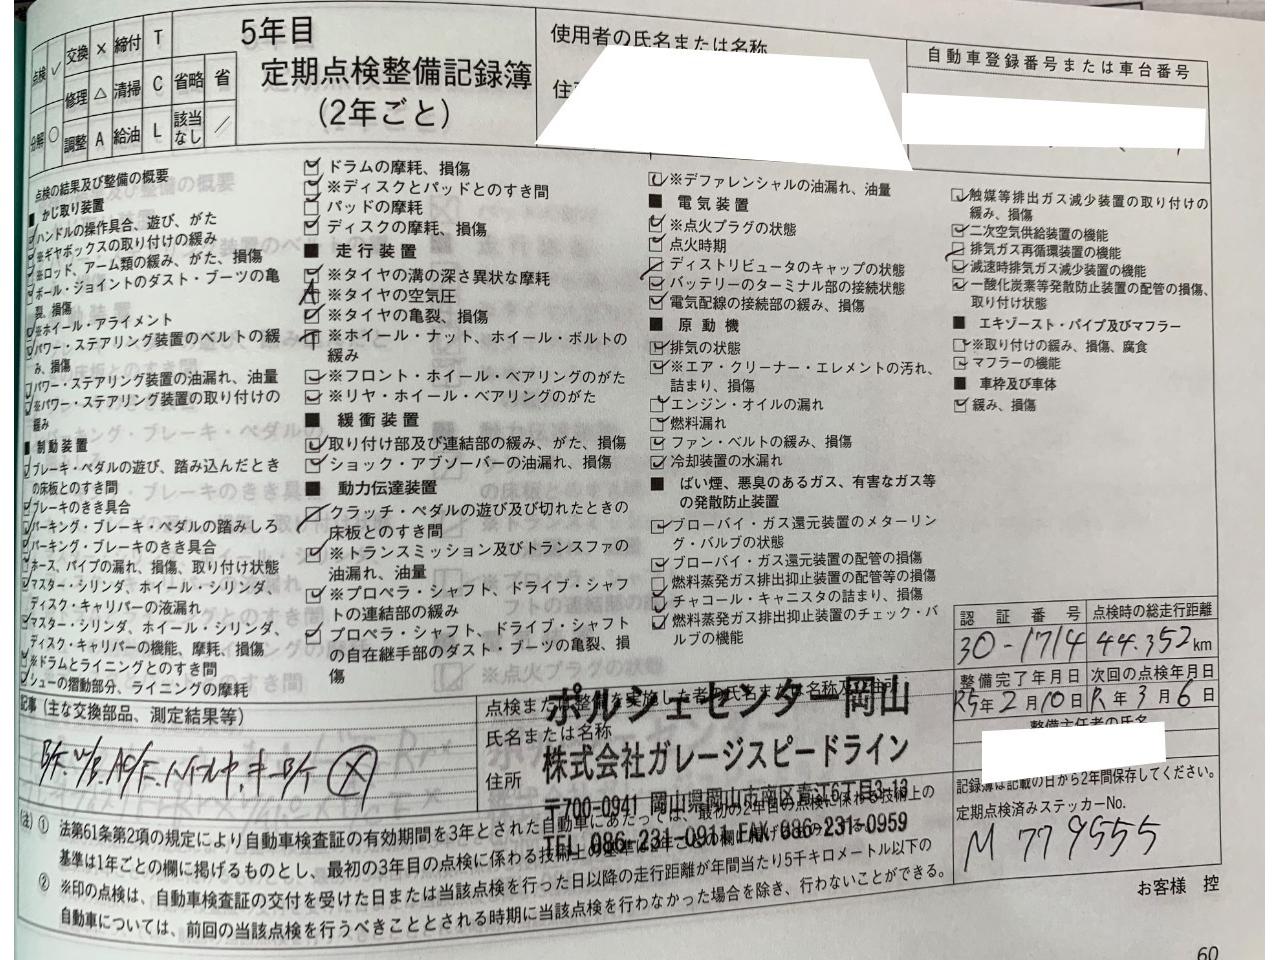 点検 ✓ 交換 × 締付 T
修理 △ 清掃 C 省略 省
分解 ○ 調整 A 給油 L 該当なし ／
5年目
定期点検整備記録簿
(2年ごと)
使用者の氏名または名称
自動車登録番号または車台番号
点検の結果及び整備の概要
■ かじ取り装置
ハンドルの操作具合、遊び、がた
※ギヤボックスの取り付けの緩み
※ロッド、アーム類の緩み、がた、損傷
ボール・ジョイントのダスト・ブーツの亀
裂、損傷
※ホイール・アライメント
パワー・ステアリング装置のベルトの緩
み、損傷
パワー・ステアリング装置の油漏れ、油量
※パワー・ステアリング装置の取り付けの
緩み
■ 制動装置
ブレーキ・ペダルの遊び、踏み込んだとき
の床板とのすき間
ブレーキのきき具合
パーキング・ブレーキ・ペダルの踏みしろ
パーキング・ブレーキのきき具合
ホース、パイプの漏れ、損傷、取り付け状態
マスター・シリンダ、ホイール・シリンダ、
ディスク・キャリパーの液漏れ
マスター・シリンダ、ホイール・シリンダ、
ディスク・キャリパーの機能、摩耗、損傷
※ドラムとライニングとのすき間
シューの摺動部分、ライニングの摩耗
ドラムの摩耗、損傷
※ディスクとパッドとのすき間
パッドの摩耗
ディスクの摩耗、損傷
■ 走行装置
※タイヤの溝の深さ異状な摩耗
※タイヤの空気圧
※タイヤの亀裂、損傷
※ホイール・ナット、ホイール・ボルトの
緩み
※フロント・ホイール・ベアリングのがた
※リヤ・ホイール・ベアリングのがた
■ 緩衝装置
取り付け部及び連結部の緩み、がた、損傷
ショック・アブソーバーの油漏れ、損傷
■ 動力伝達装置
クラッチ・ペダルの遊び及び切れたときの
床板とのすき間
※トランスミッション及びトランスファの
油漏れ、油量
※プロペラ・シャフト、ドライブ・シャフ
トの連結部の緩み
プロペラ・シャフト、ドライブ・シャフト
の自在継手部のダスト・ブーツの亀裂、損
傷
※デファレンシャルの油漏れ、油量
■ 電気装置
※点火プラグの状態
点火時期
ディストリビュータのキャップの状態
バッテリーのターミナル部の接続状態
電気配線の接続部の緩み、損傷
■ 原動機
排気の状態
※エア・クリーナー・エレメントの汚れ、
詰まり、損傷
エンジン・オイルの漏れ
燃料漏れ
ファン・ベルトの緩み、損傷
冷却装置の水漏れ
■ ばい煙、悪臭のあるガス、有害なガス等
の発散防止装置
ブローバイ・ガス還元装置のメターリン
グ・バルブの状態
ブローバイ・ガス還元装置の配管の損傷
燃料蒸発ガス排出抑止装置の配管等の損傷
チャコール・キャニスタの詰まり、損傷
燃料蒸発ガス排出抑止装置のチェック・バ
ルブの機能
触媒等排出ガス減少装置の取り付けの
緩み、損傷
二次空気供給装置の機能
排気ガス再循環装置の機能
減速時排気ガス減少装置の機能
一酸化炭素等発散防止装置の配管の損傷、
取り付け状態
■ エキゾースト・パイプ及びマフラー
※取り付けの緩み、損傷、腐食
マフラーの機能
■ 車枠及び車体
緩み、損傷
認証番号 点検時の総走行距離
30-1714 44.352 km
整備完了年月日 次回の点検年月日
R5年 2月 10日 R 年 3月 6日
整備主任者の氏名
記録簿は記載の日から2年間保存してください。
定期点検済みステッカーNo.
M 779555
お客様 控
記事 (主な交換部品、測定結果等)
点検または整備を実施した者の氏名または名称及び住所
氏名または名称
住所
ポルシェセンター岡山
株式会社ガレージスピードライン
〒700-0941 岡山県岡山市南区青江6丁目3-13
TEL 086-231-0911 FAX 086-231-0959
(注) ① 法第61条第2項の規定により自動車検査証の有効期間を3年とされた自動車にあたっては、最初の2年目の点検に係わる技術上の
基準は1年ごとの欄に掲げるものとし、最初の3年目の点検に係わる技術上の基準は2年ごとの欄に掲げるものとする。
② ※印の点検は、自動車検査証の交付を受けた日または当該点検を行った日以降の走行距離が年間当たり5千キロメートル以下の
自動車については、前回の当該点検を行うべきこととされる時期に当該点検を行わなかった場合を除き、行わないことができる。
60